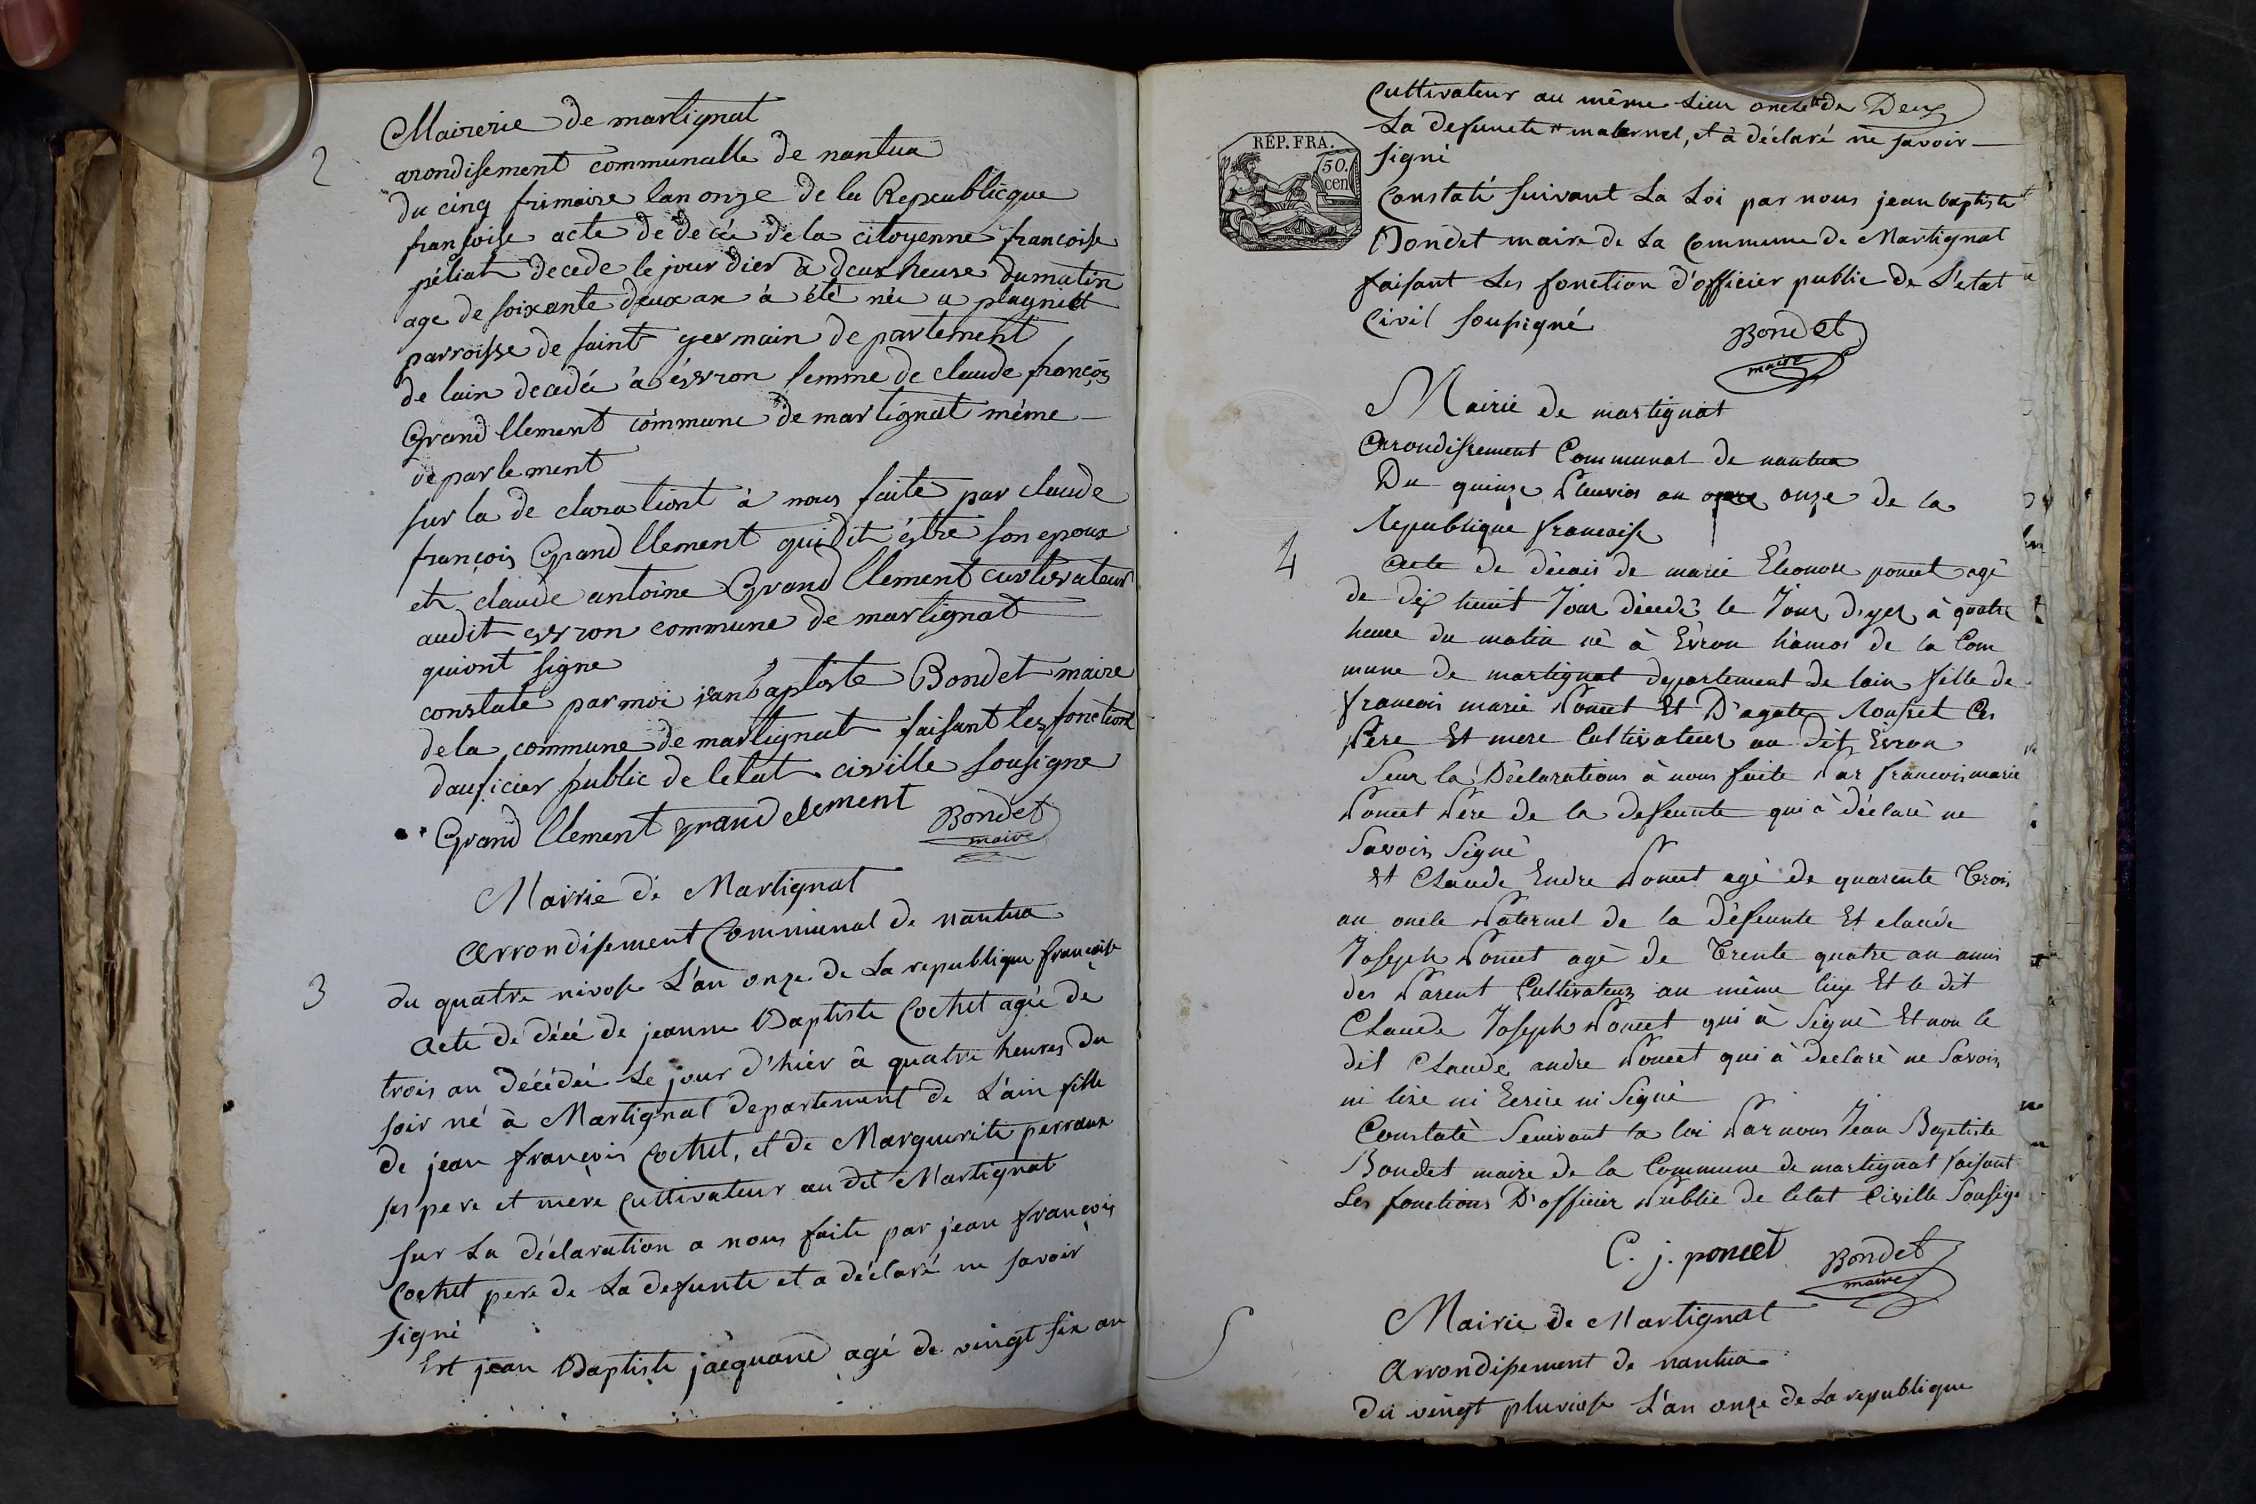 2
Mairerie de martignat
arondisement communalle de nantua
du cinq frimaire lan onze de la Republicque
franſoise acte de decée de la citoyenne francoise
péliat decede le jour dier à deux heure du matin
age de soixante deux an à été née a plagniat
parroisse de saint germain de partement
de lain decedée à évron femme de claude françois
Grand llement commune de martignat même
departement
sur la de clarationt à nous faite par claude
françois Grand llement qui dit éstre son epoux
et claude antoine Grand llement cultivateur
audit evron commune de martignat
qui ont signe
constaté par moi jean baptiste Bondet maire
de la commune de martignat faisant les fonctiont
dauficier public de letat civille sousigne
Grand llement grand clement Bondet
maire
Mairie de Martignat
Arrondisement Communal de nantua
3
du quatre nivose L'an onze de La republique françoise
acte de décé de jeanne Baptiste Cochet agée de
trois an décédée Le jour d'hiér à quatre heures du
soir né à Martignat departement de L'ain fille
de jean françois Cochet, et de Marguerite perraux
ses pere et mère Cultivateur au dit Martignat
sur La déclaration a nous faite par jean françois
Cochet pere de La defunte et a déclaré ne savoir
signé
Et jean Baptiste jacquand agé de vingt six an
Cultivateur au même Lieu oncle de
La defuncte maternel, et à déclaré ne savoir
signé
RÉP. FRA.
50.
cen
Constaté suivant La Loi par nous jean baptiste
Bondet maire de La Commune de Martignat
faisant Les fonction d'officier public de L'etat
Civil soussigné
Bondet
maire
Mairie de martignat
Arondissement Communal de nantua
Du quinze Pluvios an onze de la
Republique francaise
4
acte de décais de marie Eléonore poncet agé
de dix huit Jour décedé le Jour d'yer à quatre
heure du matin né à Evron hamos de la Com
mune de martignat departement de lain fille de
francois marie Poncet Et D'agate Rousset Ces
Pere Et mere Cultivateur au dit Evron
Seur la Déclarations à nous faite Par francois marie
Poncet Pere de la defeunte qui à déclaré ne
Savoir Signé
Et Claude Endre Poncet agé de quarente Trois
an oncle Paternel de la Défeunte Et claude
Joseph Poncet agé de Trente quatre an amis
des Parent Cultivateur au même lieu Et le dit
Claude Joseph Poncet qui à Signé Et non le
dit Claude andre Poncet qui à declaré ne Savoir
ni lire ni Ecrire ni Signé
Constaté Seuivant la loi Par nous Jean Baptiste
Bondet maire de la Commune de martignat faisant
Les fonctions D'officier Public de letat Civille Sousigé
C. j. poncet Bondet
maire
5
Mairie de Martignat
Arrondissement de nantua
du vingt pluviose L'an onze de La republique